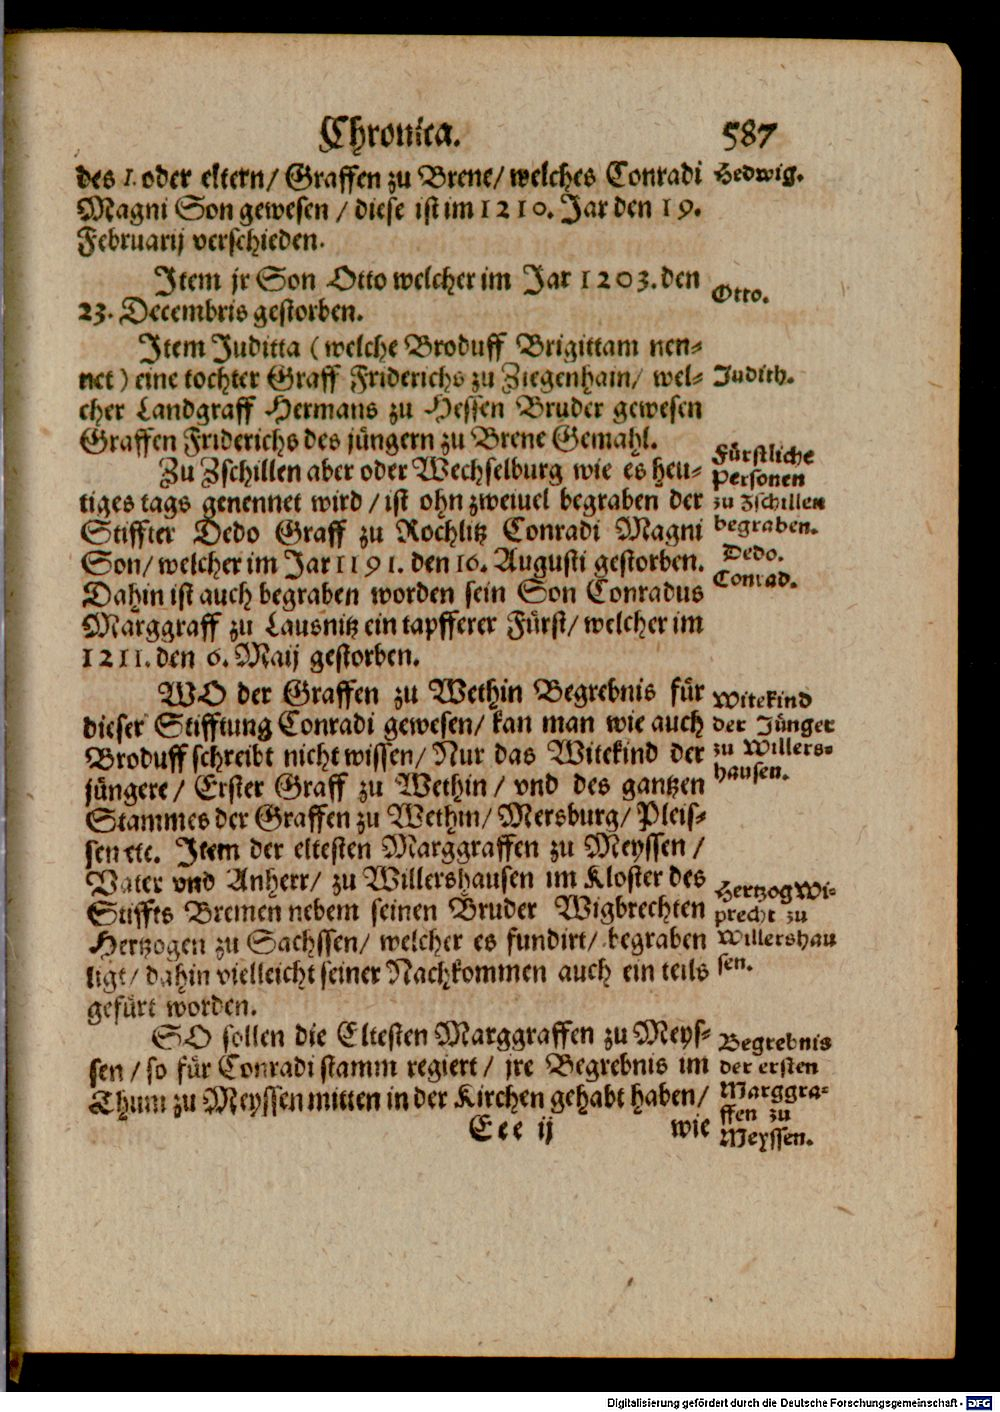 Chronica. 587
des 1. oder eltern/ Graffen zu Brene/ welches Conradi
Magni Son gewesen / diese ist im 1210. Jar den 19.
Februarij verschieden.
Hedwig.
Item jr Son Otto welcher im Jar 1203. den
23. Decembris gestorben.
Otto.
Item Juditta (welche Broduff Brigittam nen-
net) eine tochter Graff Friderichs zu Ziegenhain/ wel-
cher Landgraff Hermans zu Hessen Bruder gewesen
Graffen Friderichs des jüngern zu Brene Gemahl.
Judith.
Zu Zschillen aber oder Wechselburg wie es heu-
tiges tags genennet wird / ist ohn zweiuel begraben der
Stiffter Dedo Graff zu Rochlitz Conradi Magni
Son/ welcher im Jar 1191. den 16. Augusti gestorben.
Dahin ist auch begraben worden sein Son Conradus
Marggraff zu Lausnitz ein tapfferer Fürst/ welcher im
1211. den 6. Maij gestorben.
Fürstliche
Personen
zu Zschillen
begraben.
Dedo.
Conrad.
WO der Graffen zu Wethin Begrebnis für
dieser Stifftung Conradi gewesen/ kan man wie auch
Broduff schreibt nicht wissen/ Nur das Witekind der
jüngere/ Erster Graff zu Wethin / vnd des gantzen
Stammes der Graffen zu Wethin/ Mersburg/ Pleis-
sen etc. Item der eltesten Marggraffen zu Meyssen /
Vater vnd Anherr/ zu Willershausen im Kloster des
Stiffts Bremen nebem seinen Bruder Wigbrechten
Hertzogen zu Sachssen/ welcher es fundirt/ begraben
ligt/ dahin vielleicht seiner Nachkommen auch ein teils
gefürt worden.
Witekind
der Jünger
zu Willers-
hausen.
Hertzog Wi-
precht zu
Willershau
sen.
SO sollen die Eltesten Marggraffen zu Meys-
sen / so für Conradi stamm regiert / jre Begrebnis im
Thum zu Meyssen mitten in der Kirchen gehabt haben/
Begrebnis
der ersten
Marggra-
ffen zu
Meyssen.
Eee ij wie
Digitalisierung gefördert durch die Deutsche Forschungsgemeinschaft - DFG